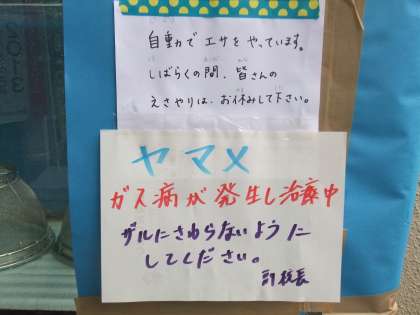 自動でエサをやっています。
しばらくの間、皆さんの
えさやりは、お休みして下さい。
ヤマメ
ガス病が発生し治療中
ザルにさわらないように
してください。
副校長